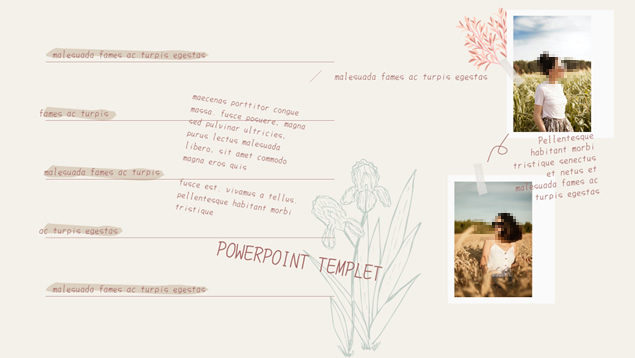 malesuada fames ac turpis egestas
malesuada fames ac turpis egestas
fames ac turpis
maecenas porttitor congue
massa. fusce posuere, magna
sed pulvinar ultricies,
purus lectus malesuada
libero, sit amet commodo
magna eros quis
Pellentesque
habitant morbi
tristique senectus
et netus et
malesuada fames ac
turpis egestas
malesuada fames ac turpis
fusce est. vivamus a tellus.
pellentesque habitant morbi
tristique
ac turpis egestas
POWERPOINT TEMPLET
malesuada fames ac turpis egestas